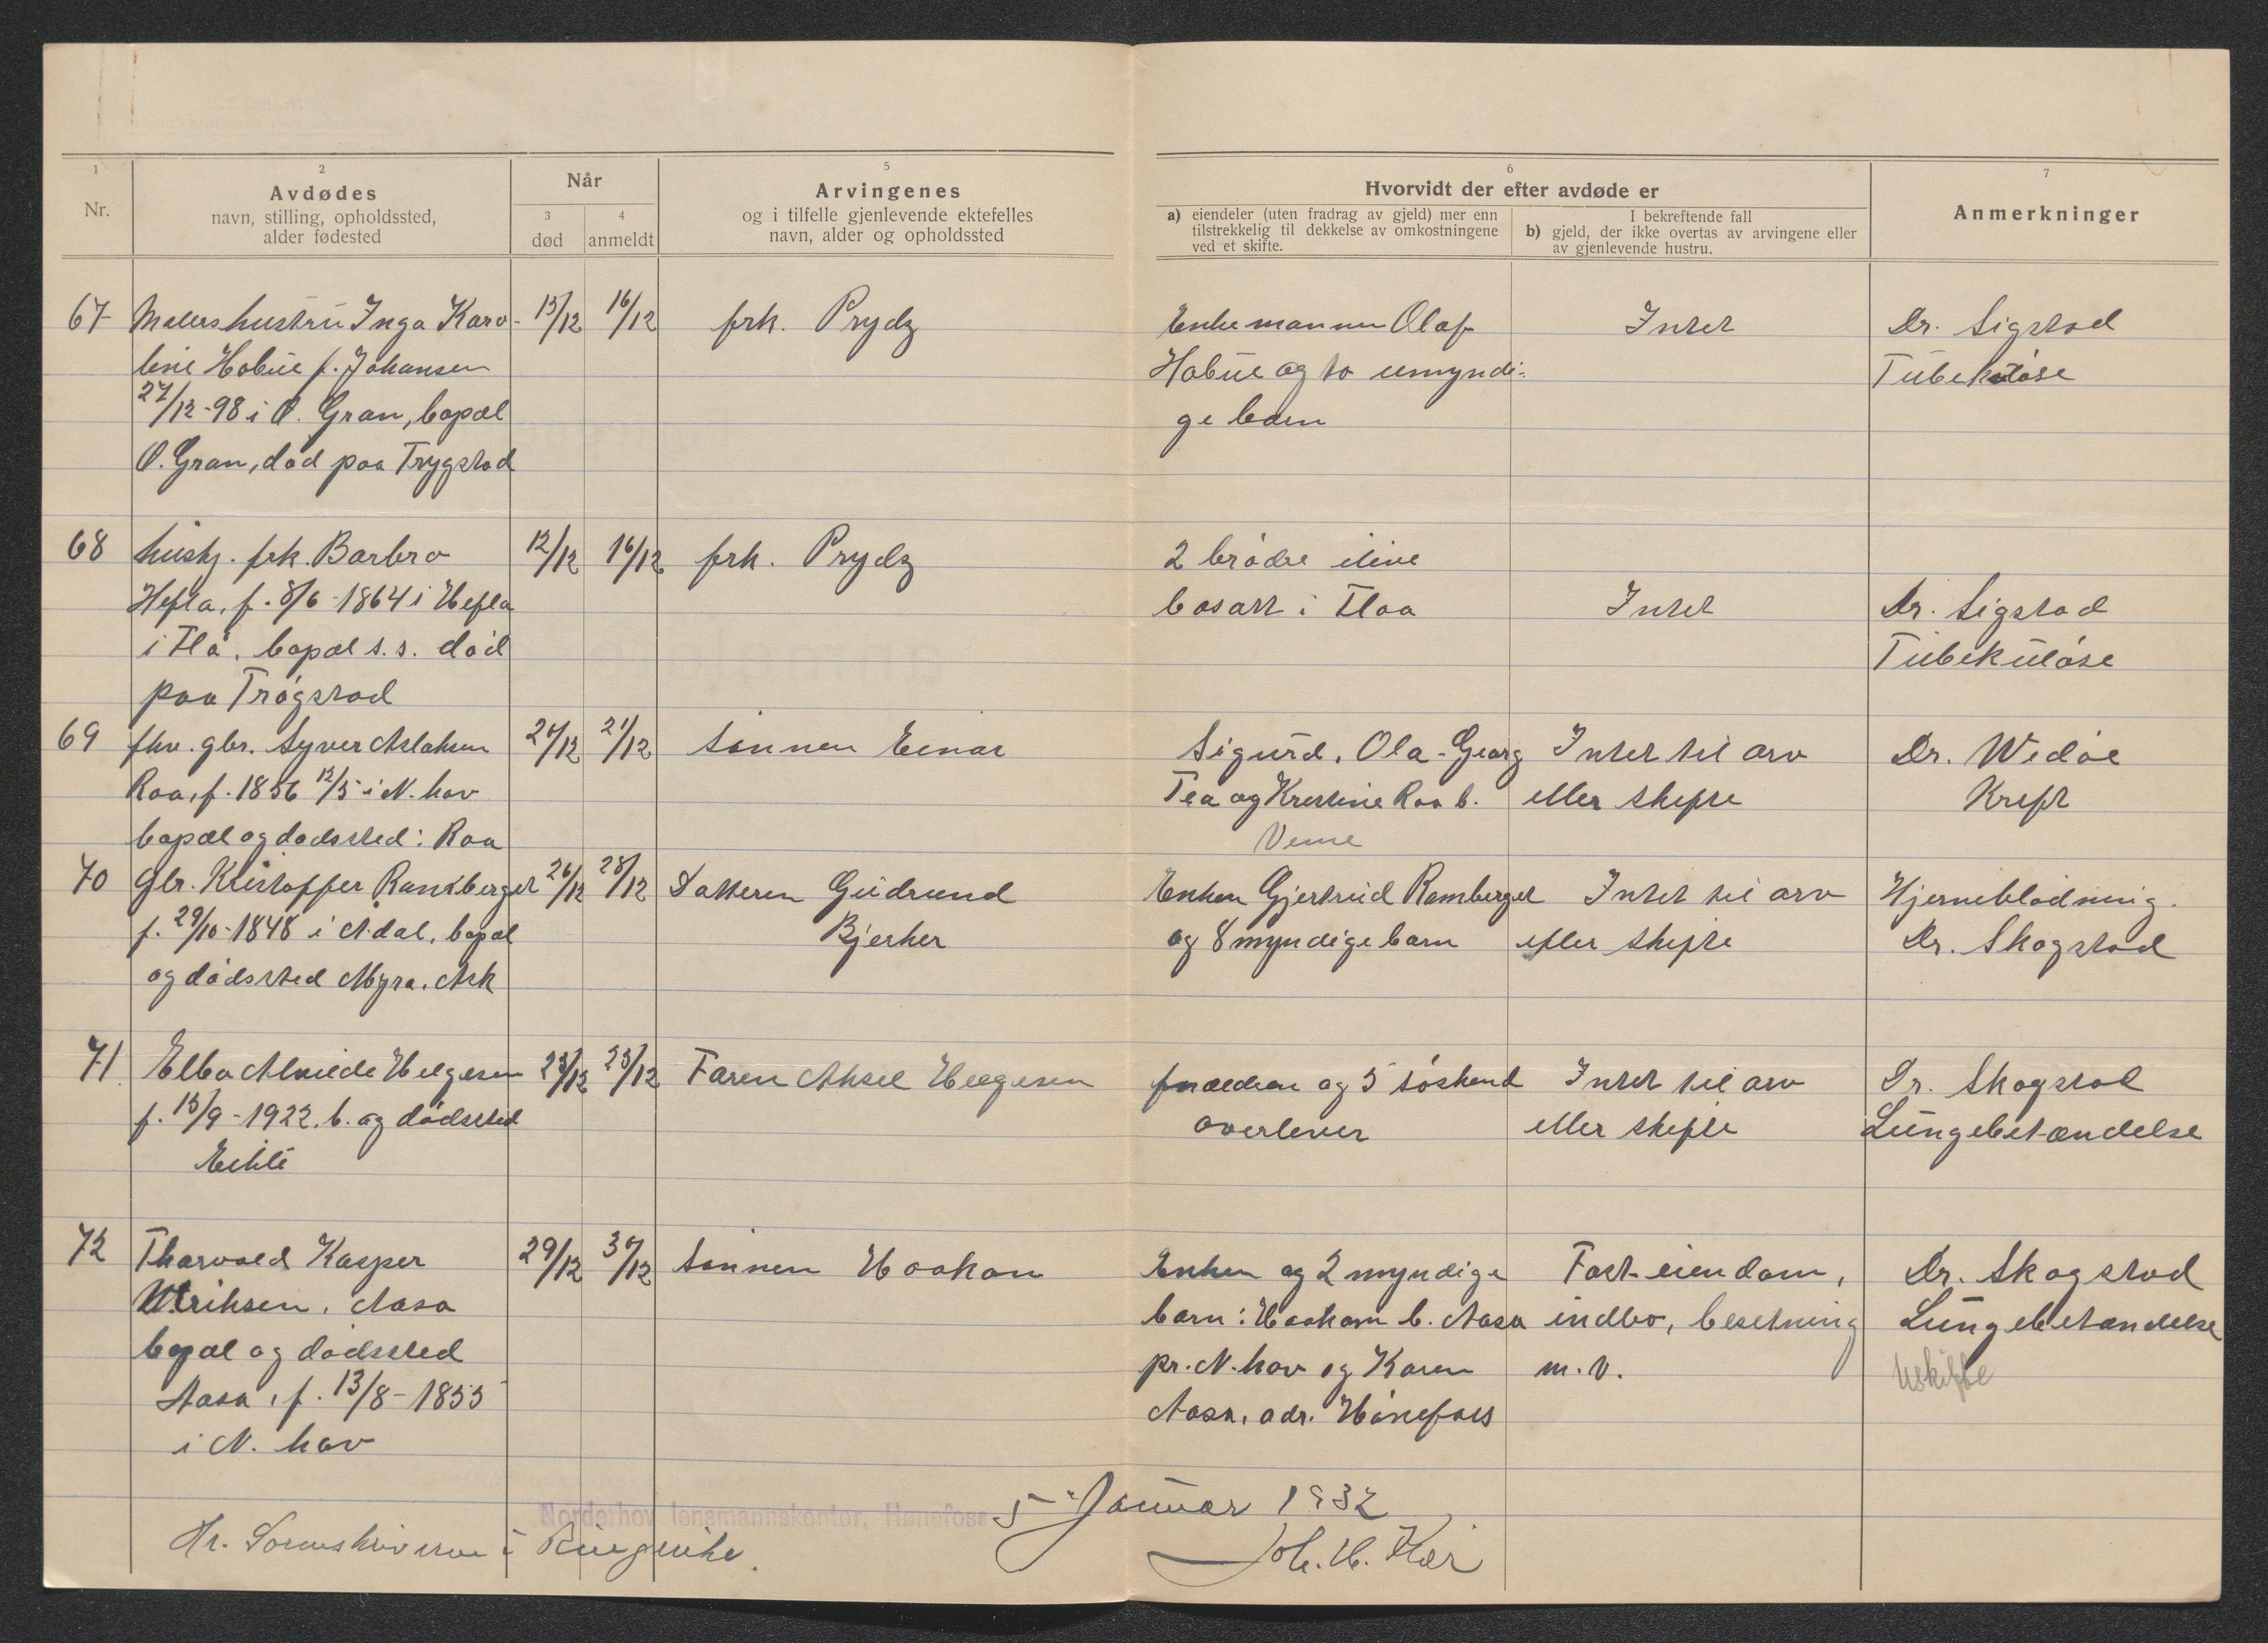 1
Nr.
2
Avdødes
navn, stilling, opholdssted,
alder fødested
Når
3
død
4
anmeldt
5
Arvingenes
og i tilfelle gjenlevende ektefelles
navn, alder og opholdssted
6
Hvorvidt der efter avdøde er
a) eiendeler (uten fradrag av gjeld) mer enn
tilstrekkelig til dekkelse av omkostningene
ved et skifte.
I bekreftende fall
b) gjeld, der ikke overtas av arvingene eller
av gjenlevende hustru.
7
Anmerkninger
67 Malershustru Inga Karo- 15/12 16/12 frk. Prydz Enkemannen Olaf Intet Dr. Sigstad
line Hobue f. Johansen Hobue og to umyndi- Tuberkuløse
27/12-98 i Ø. Gran, bopæl ge barn
Ø. Gran, død paa Trygstad
68 hush. frk. Barbro 12/12 16/12 frk. Prydz 2 brødre ilive
Hefta, f. 8/6-1864 i Hefla bosatt i Flaa Intet Dr. Sigstad
i Flå, bopæl s.s. død Tubekuløse
paa Trøgstad
69 fhv. gbr. Syver Aslaksen 21/12 Sønnen Einar Sigurd, Ola-Georg Intet til arv Dr. Wedøe
Roa, f. 1856 12/5 i N.hov Tea og Kristine Roa b. eller skifte Kreft
bopæl og dødssted: Roa Veme
70 Gbr. Kristoffer Ramberget 26/12 28/12 Datteren Gudrund Enken Gjertrud Ramberget Intet til arv Hjerneblødning.
f. 29/10-1848 i Ådal, bopæl Bjerker og 8 myndige barn eller skifte Dr. Skogstad
og dødssted Myra, Ask
71 Elba Helgesen 23/12 Faren Aksel Helgesen forældrene og 5 søskend Intet til arv Dr. Skogstad
f. 15/9-1922. b. og dødssted overlever eller skifte Lungebetændelse
Eikli
72 Thorvald Kasper 29/12 30/12 Sønnen Haakon Enken og 2 myndige Fast eiendom, Dr. Skogstad
Ulriksen, Aasa barn: Haakon b. Aasa indbo, besetning Lungebetændelse
bopæl og dødssted pr. N.hov og Karen m.v. Uskifte
Aasa, f. 13/8-1855 Aasa, adr. Hønefoss
i N. hov
Norderhov lensmannskontor, Hønefoss 5 Januar 1932
Hr. Sorenskriveren i Ringerike.